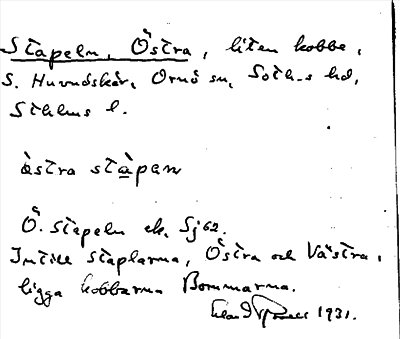 Stapeln, Östra, liten kobbe,
S. Huvudskär, Ornö sn, Soth-s hd,
Sthlms l.
àstra stàpen
Ö. Stapeln ek. Sj62.
Intill staplarna, Östra och Västra,
ligga kobbarna Bommarna.
1931.